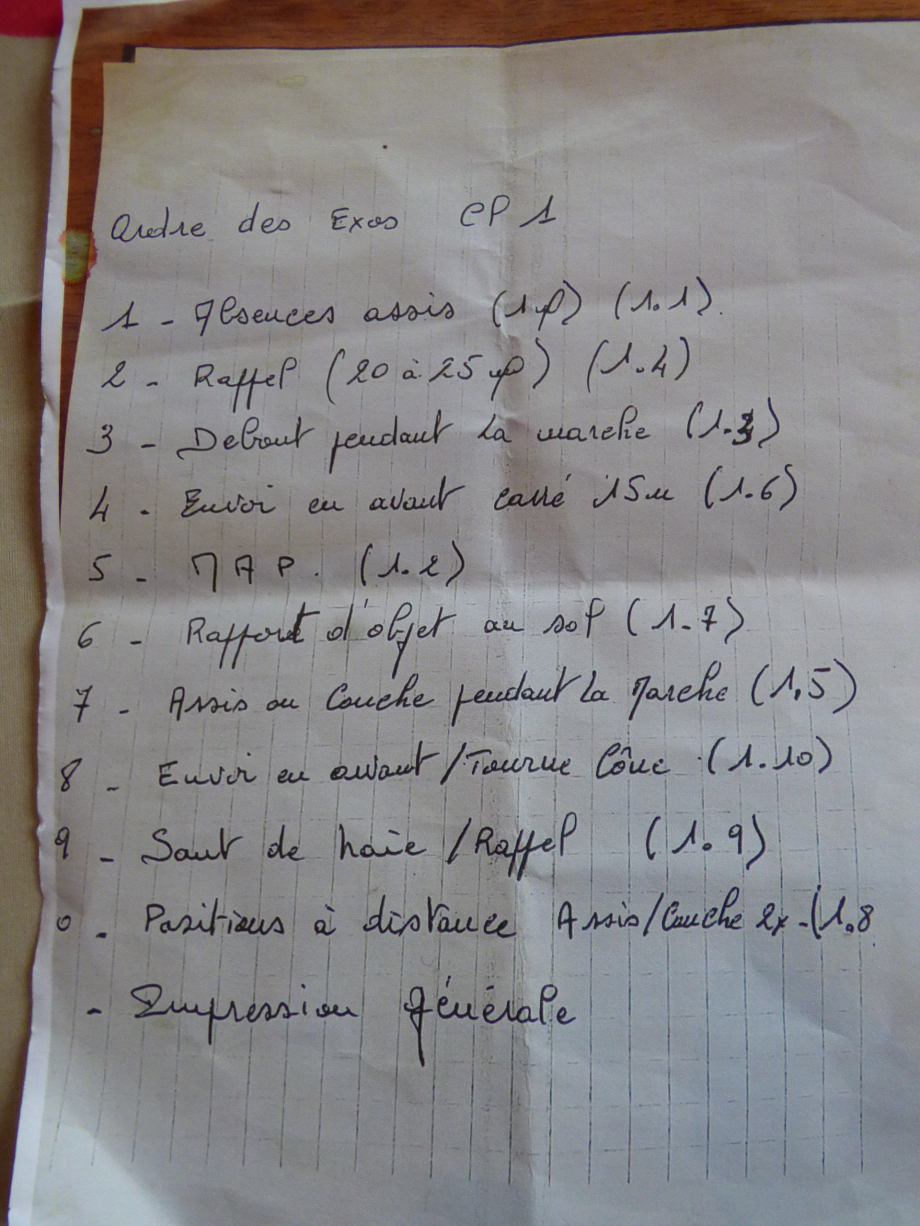 Ordre des Exos CP 1
1 - Absences assis (1.1).
2 - Rappel (20 à 25 ) (1.4)
3 - Debout pendant la marche (1.3)
4 - Envoi en avant carré 15m (1.6)
5 - MAP. (1.2)
6 - Rapport d'objet au sol (1.7)
7 - Assis ou Couche pendant la Marche (1.5)
8 - Envoi en avant/Tourne Cône (1.10)
9 - Saut de haie / Rappel (1.9)
0 - Positions à distance Assis/Couche 2x - (1.8
- Impression générale